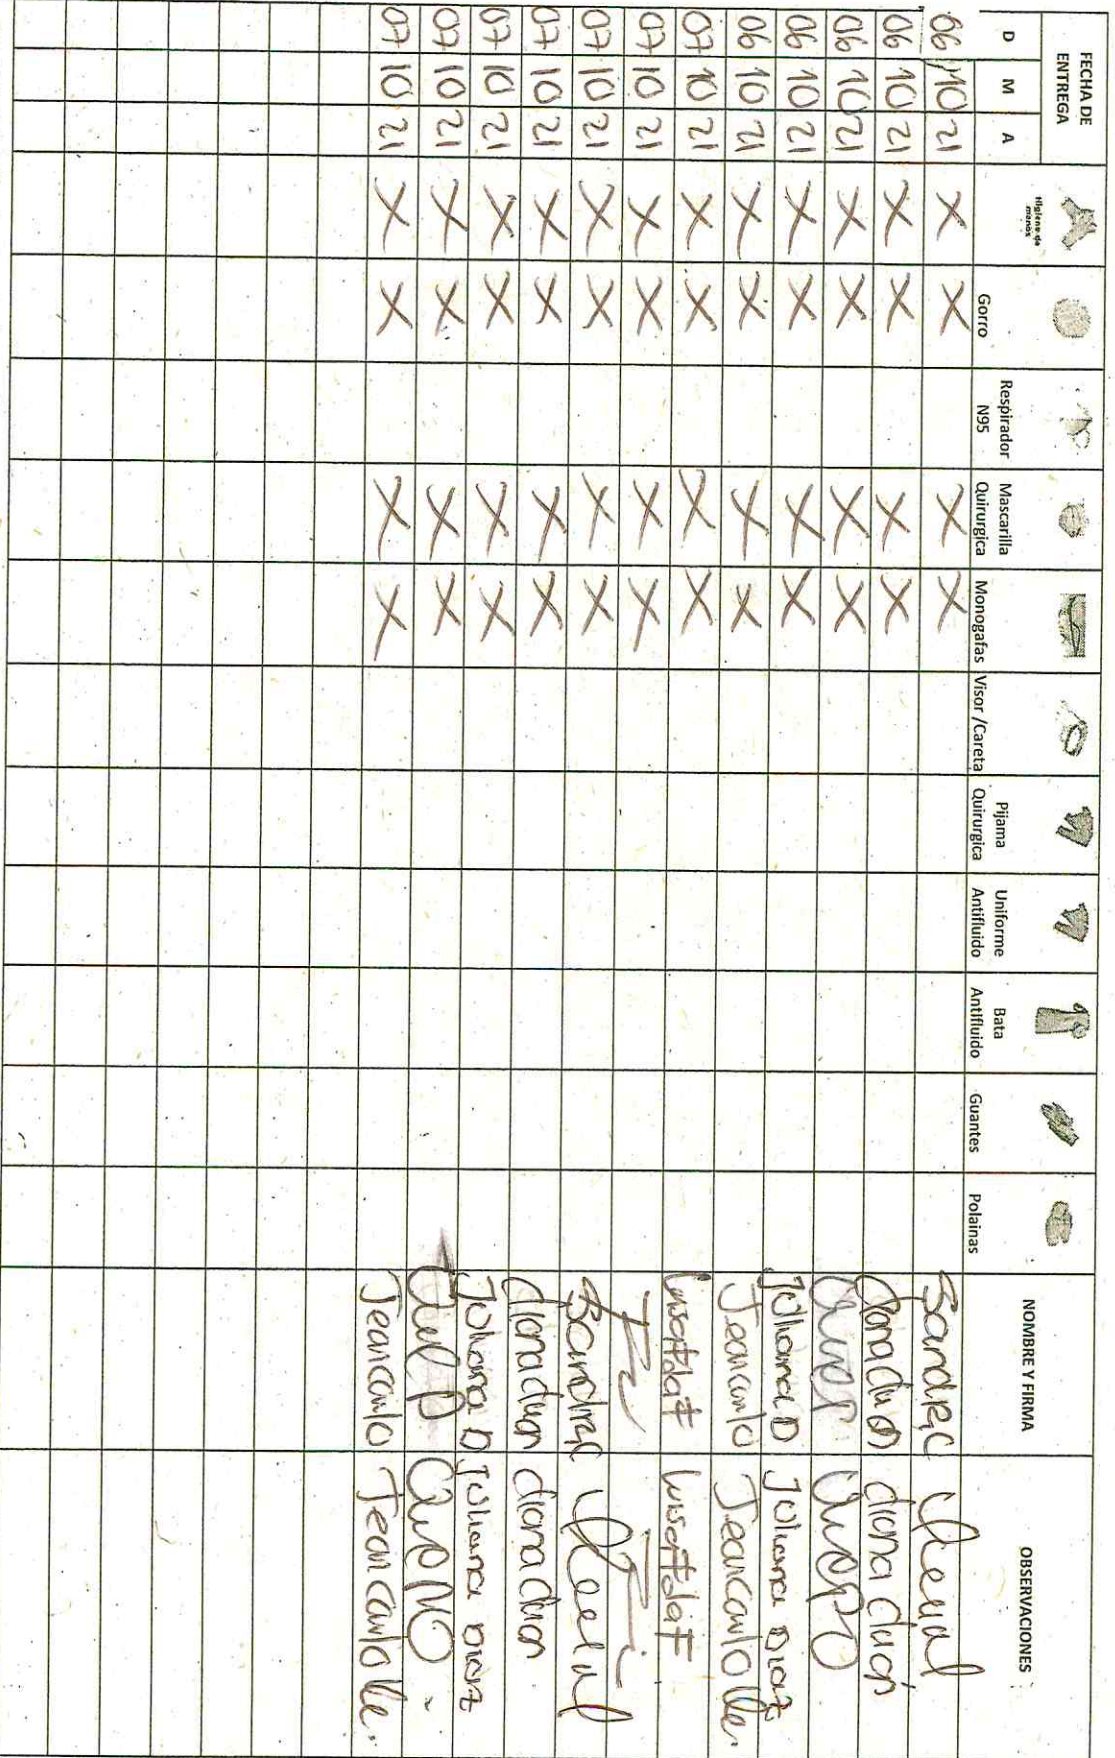 FECHA DE ENTREGA
D M A Higiene de manos Gorro Respirador N95 Mascarilla Quirurgica Monogafas Visor /Careta Pijama Quirurgica Uniforme Antifluido Bata Antifluido Guantes Polainas NOMBRE Y FIRMA OBSERVACIONES
06 10 21 X X X X Sandra C
06 10 21 X X X X diana duran
06 10 21 X X X X
06 10 21 X X X X Juliana D Juliana Diaz
06 10 21 X X X X Jeancarlo Jeancarlo
07 10 21 X X X X
07 10 21 X X X X
07 10 21 X X X X Sandra C
07 10 21 X X X X diana duran diana duran
07 10 21 X X X X Juliana D Juliana Diaz
07 10 21 X X X X
07 10 21 X X X X Jeancarlo Jeancarlo